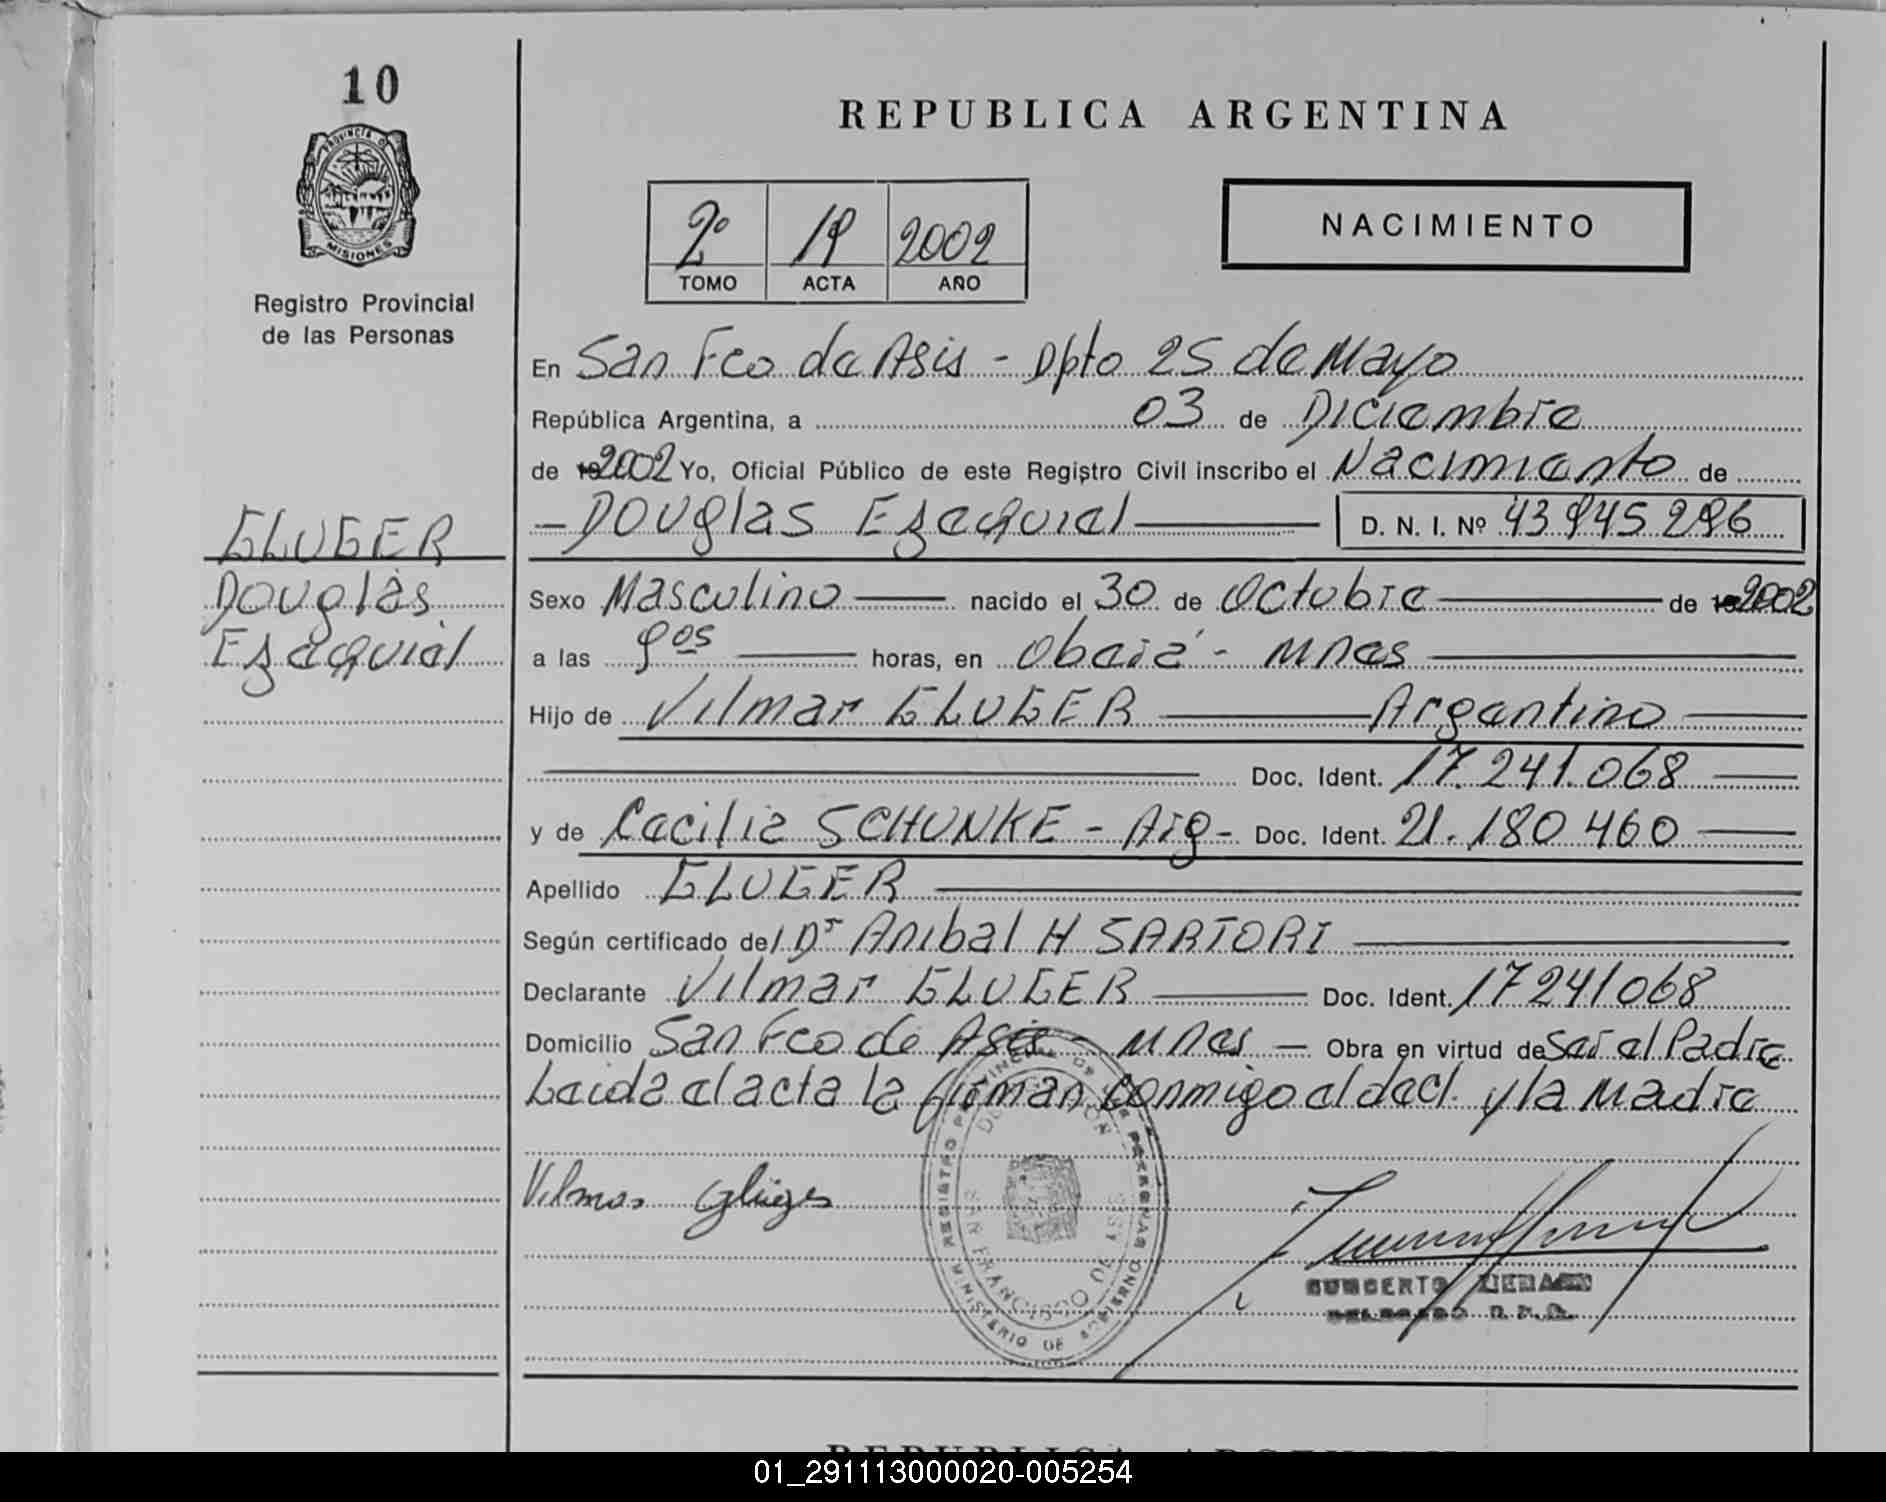 10
PROVINCIA DE
MISIONES
Registro Provincial
de las Personas
REPUBLICA ARGENTINA
2º 19 2002
TOMO ACTA AÑO
NACIMIENTO
En San Fco de Asis - Dpto 25 de Mayo
República Argentina, a 03 de Diciembre
de 2002 Yo, Oficial Público de este Registro Civil inscribo el Nacimiento de
- Douglas Ezequiel D. N. I. Nº 43945296
GLUGER
Douglas
Ezequiel
Sexo Masculino nacido el 30 de Octubre de 2002
a las 9os horas, en Oberá - Mnes
Hijo de Vilmar GLUGER Argentino
Doc. Ident. 17.241.068
y de Cecilia SCHUNKE - Arg - Doc. Ident. 21.180460
Apellido GLUGER
Según certificado del Dr Anibal H SARTORI
Declarante Vilmar GLUGER Doc. Ident. 17241068
Domicilio San Fco de Asis - Mnes - Obra en virtud de Ser el Padre
Leida el acta la firman conmigo el decl. y la Madre
Vilmar Glüger
REGISTRO PROVINCIAL DE LAS PERSONAS
DELEGACION
SAN FRANCISCO DE ASIS
MINISTERIO DE GOBIERNO
REPUBLICA ARGENTINA
01_291113000020-005254